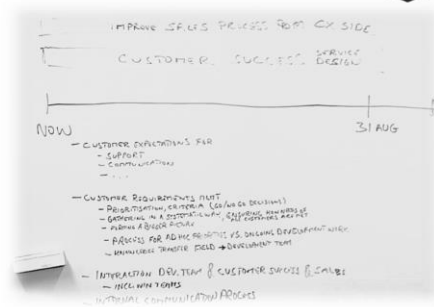 IMPROVE SALES PROCESS FROM CX SIDE
CUSTOMER SUCCESS SERVICE DESIGN
NOW 31 AUG
- CUSTOMER EXPECTATIONS FOR
- SUPPORT
- COMMUNICATION
- ...
- CUSTOMER REQUIREMENTS MGMT
- PRIORITISATION, CRITERIA (GO/NO GO DECISIONS)
- GATHERING IN A SYSTEMATIC WAY, ENSURING
ALL CUSTOMERS ARE MET
- FORMING A BIGGER PICTURE
- PROCESS FOR AD HOC PROJECTS VS. ONGOING DEVELOPMENT WORK
- KNOWLEDGE TRANSFER FIELD → DEVELOPMENT TEAM
- INTERACTION DEV. TEAM & CUSTOMER SUCCESS & SALES
- INCL. WIN TEAMS
- INTERNAL COMMUNICATION PROCESS